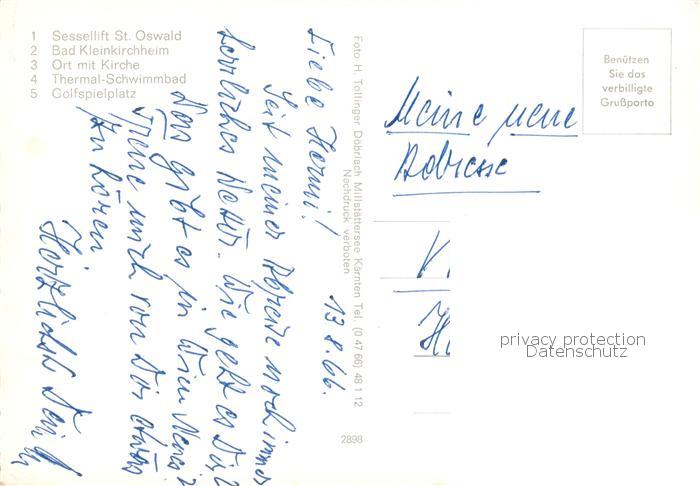 1 Sessellift St. Oswald
2 Bad Kleinkirchheim
3 Ort mit Kirche
4 Thermal-Schwimmbad
5 Golfspielplatz
Foto H. Tollinger Döbriach Millstättersee Kärnten Tel. (0 47 66) 48 1 12
Nachdruck verboten
2898
Benützen
Sie das
verbilligte
Grußporto
13.8.66.
Liebe Hermi!
Seit meiner Abreise noch immer
herrliches Wetter. Wie geht es Dir?
Was gibt es in Wien Neues?
Freue mich von Dir etwas
zu hören
Herzlichst Deine
Meine neue
Adresse
privacy protection
Datenschutz